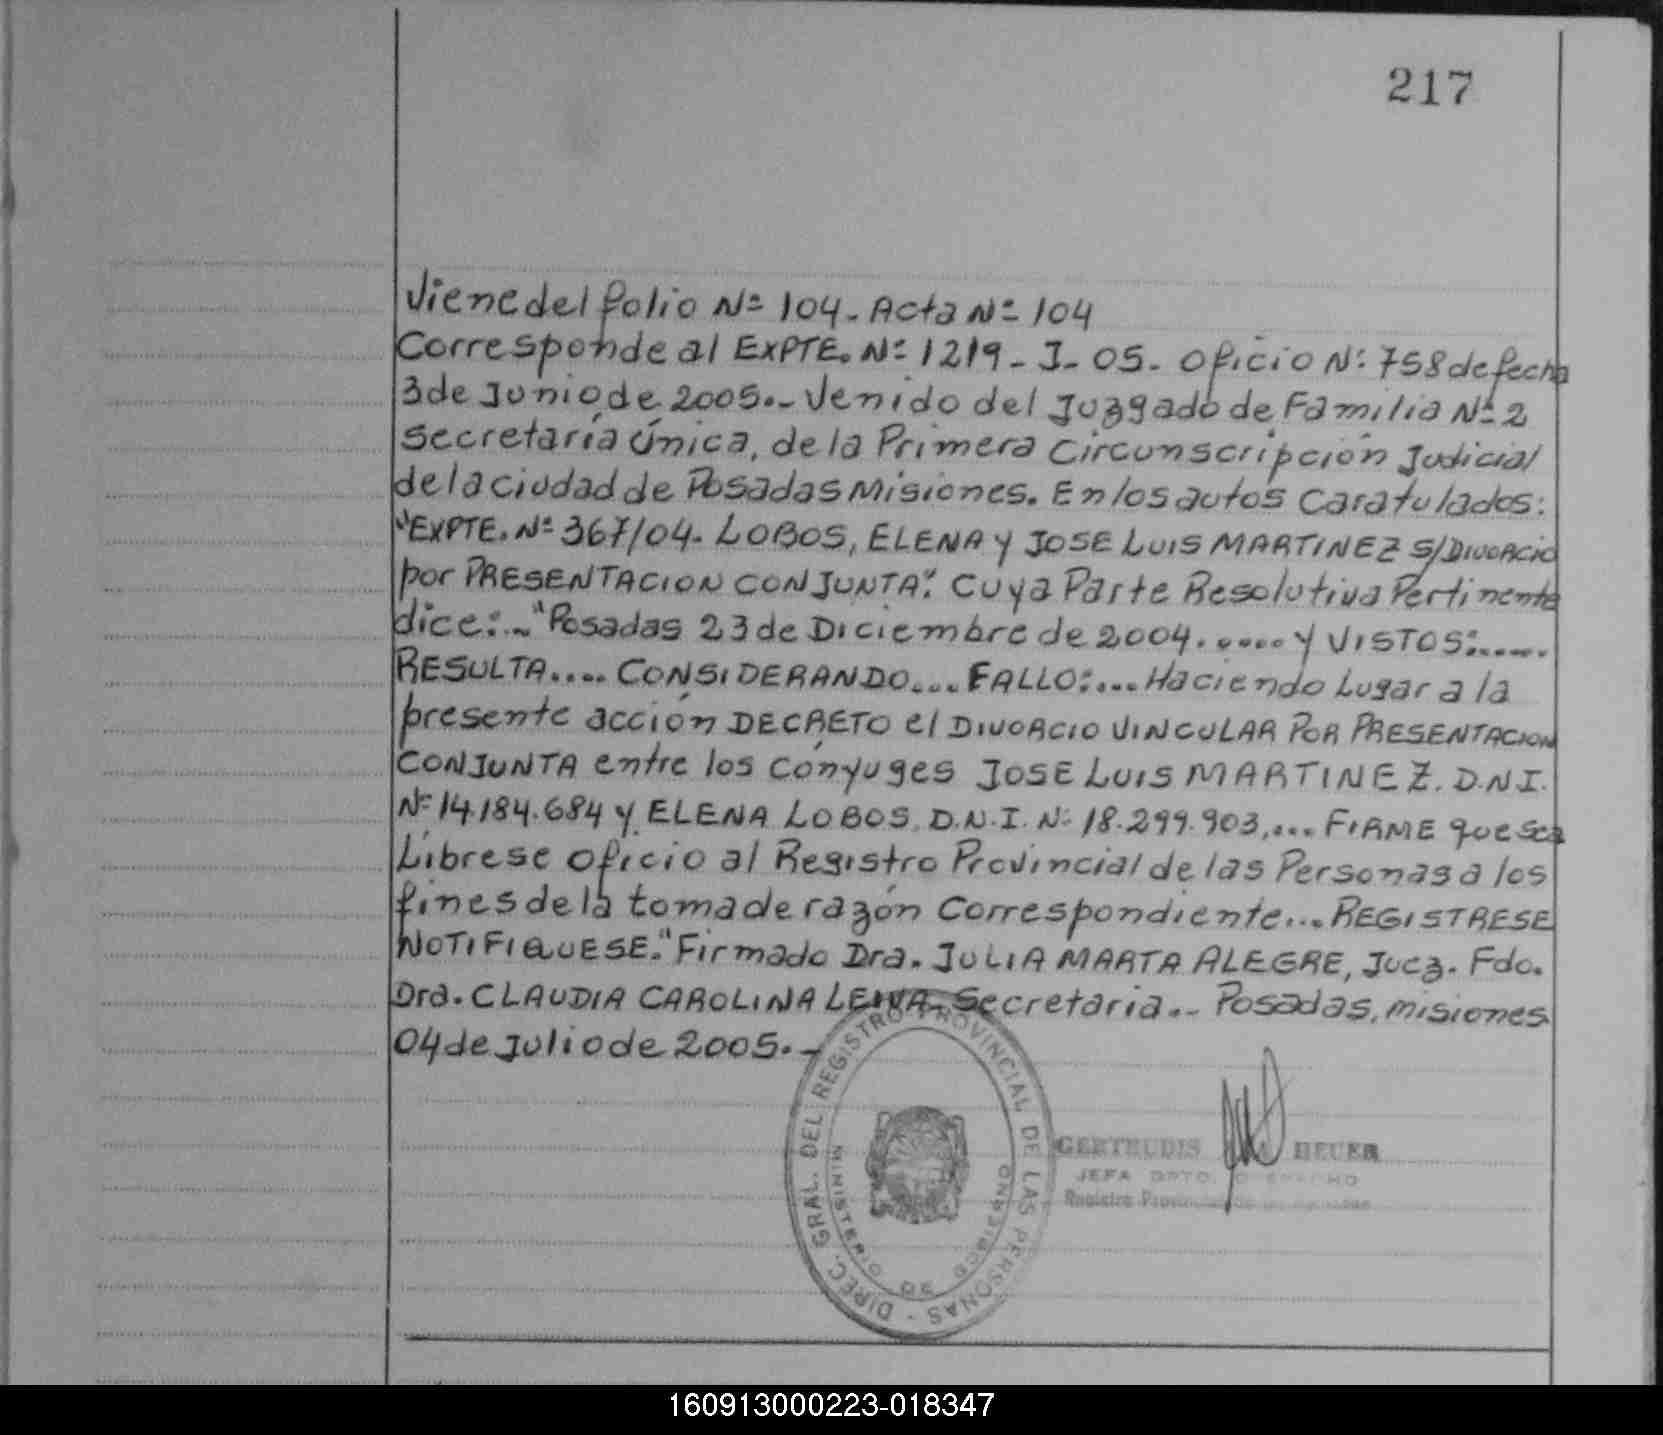 217
Viene del folio Nº 104. Acta Nº 104
Corresponde al EXPTE. Nº 1219 - J - 05. Oficio Nº 758 de fecha
3 de Junio de 2005.- Venido del Juzgado de Familia Nº 2
Secretaría Única, de la Primera Circunscripción Judicial
de la ciudad de Posadas Misiones. En los autos Caratulados:
"EXPTE. Nº 367/04. LOBOS, ELENA y JOSE LUIS MARTINEZ S/DIVORCIO
por PRESENTACION CONJUNTA". Cuya Parte Resolutiva Pertinente
dice:.- "Posadas 23 de Diciembre de 2004...... y VISTOS:.....
RESULTA..... CONSIDERANDO.... FALLO:.... Haciendo Lugar a la
presente acción DECRETO el DIVORCIO VINCULAR POR PRESENTACION
CONJUNTA entre los cónyuges JOSE LUIS MARTINEZ. D.N.I.
Nº 14.184.684 y ELENA LOBOS. D.N.I. Nº 18.299.903,... FIRME que sea
Líbrese oficio al Registro Provincial de las Personas a los
fines de la toma de razón Correspondiente... REGISTRESE
NOTIFIQUESE." Firmado Dra. JULIA MARTA ALEGRE, Juez. Fdo.
Dra. CLAUDIA CAROLINA LEIVA. Secretaria.- Posadas, misiones
04 de Julio de 2005.-
DIREC. GRAL. DEL REGISTRO PROVINCIAL DE LAS PERSONAS -
MINISTERIO DE GOBIERNO
GERTRUDIS HEUER
JEFA DPTO.
Registro Provincial de las Personas
160913000223-018347